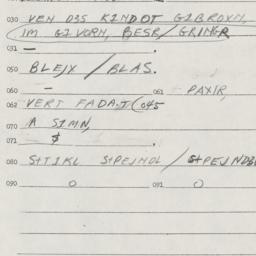 030 VEN D3S KINDOT GIBROXN,
IM GIVORN, BESR/GRIMGR
031 — .
050 BLEJX / BLAS.
060 — 061 PAXIR,
062 VERT FADAJT (045
070 A SIMN,
071 $ .
080 StIKL StPEJNOL / StPEJNDB
090 0 091 0